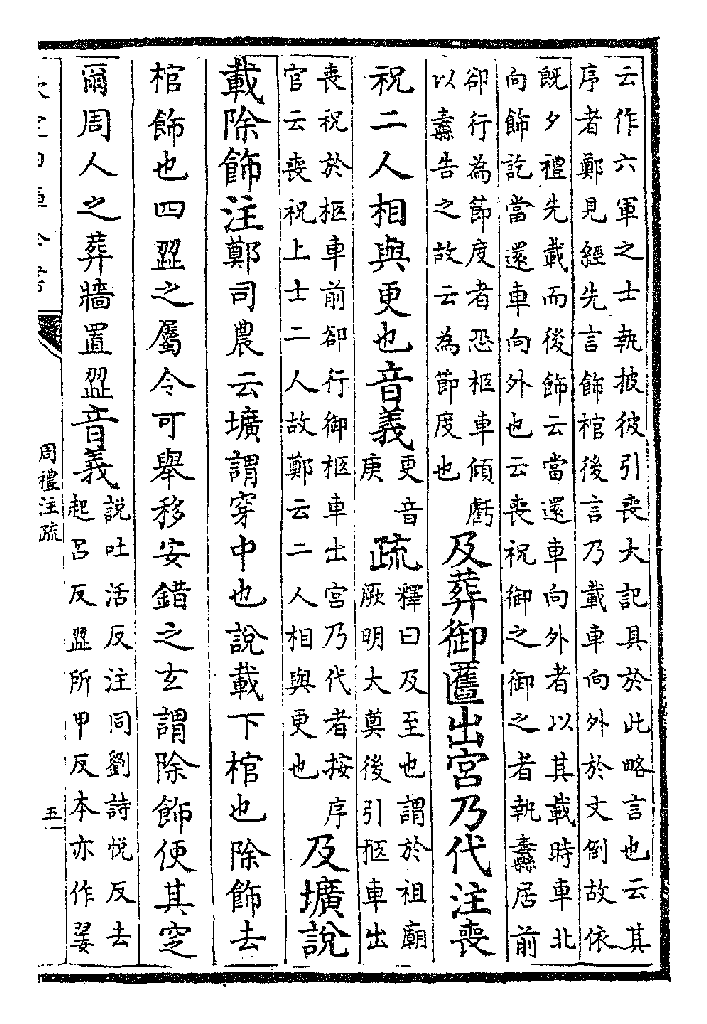 云作六軍之士執披彼引喪大記具於此略言也云其
序者鄭見經先言飾棺後言乃載車向外於文倒故依
既夕禮先載而後飾云當還車向外者以其載時車北
向飾訖當還車向外也云喪祝御之御之者執纛居前
卻行為節度者恐柩車傾虧
以纛告之故云為節度也
及葬御匶出宮乃代注喪
祝二人相與更也音義
更音
庚
疏
釋曰及至也謂於祖廟
厥明大奠後引柩車出
喪祝於柩車前卻行御柩車出宮乃代者按序
官云喪祝上士二人故鄭云二人相與更也
及壙說
載除飾注鄭司農云壙謂穿中也說載下棺也除飾去
棺飾也四歰之屬令可舉移安錯之玄謂除飾便其窆
爾周人之葬牆置歰音義
說吐活反注同劉詩悅反去
起呂反歰所甲反本亦作翣
周禮注疏
五